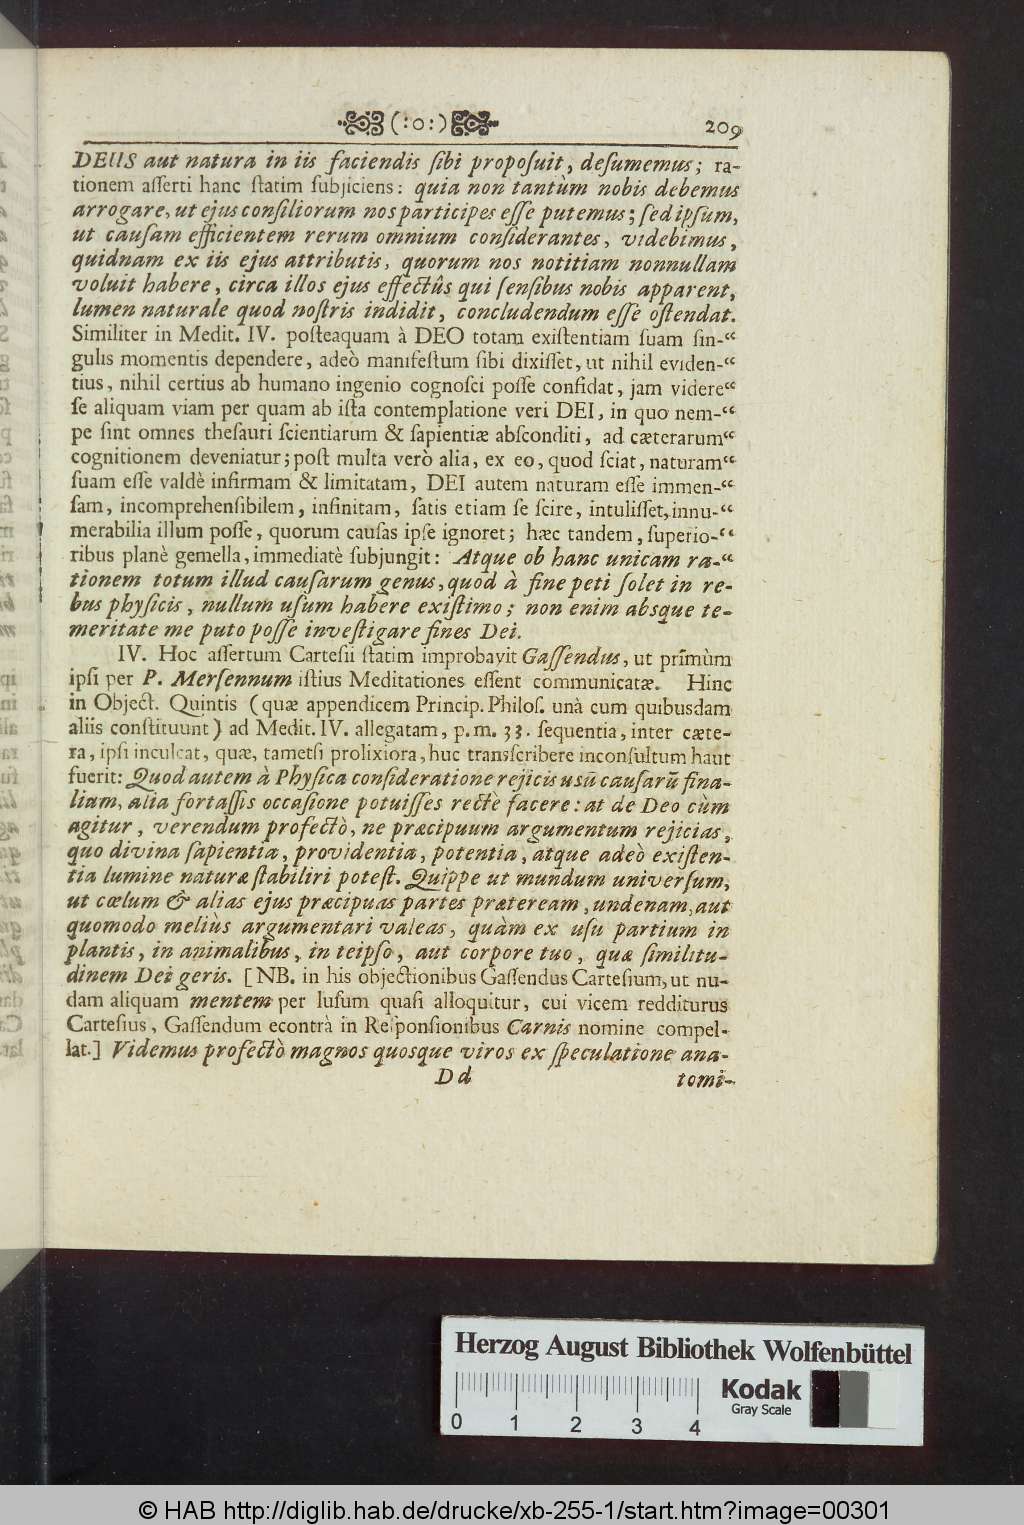 (:o:) 209
DEUS aut natura in iis faciendis ſibi propoſuit, deſumemus; ra-
tionem aſſerti hanc ſtatim ſubjiciens: quia non tantùm nobis debemus
arrogare, ut ejus conſiliorum nos participes eſſe putemus; ſed ipſum,
ut cauſam efficientem rerum omnium conſiderantes, videbimus,
quidnam ex iis ejus attributis, quorum nos notitiam nonnullam
voluit habere, circa illos ejus effectûs qui ſenſibus nobis apparent,
lumen naturale quod noſtris indidit, concludendum eſſe oſtendat.
Similiter in Medit. IV. poſteaquam à DEO totam exiſtentiam ſuam ſin-“
gulis momentis dependere, adeò manifeſtum ſibi dixiſſet, ut nihil eviden-“
tius, nihil certius ab humano ingenio cognoſci poſſe confidat, jam videre“
ſe aliquam viam per quam ab iſta contemplatione veri DEI, in quo nem-“
pe ſint omnes theſauri ſcientiarum & ſapientiæ abſconditi, ad cæterarum“
cognitionem deveniatur; poſt multa verò alia, ex eo, quod ſciat, naturam“
ſuam eſſe valdè infirmam & limitatam, DEI autem naturam eſſe immen-“
ſam, incomprehenſibilem, infinitam, ſatis etiam ſe ſcire, intuliſſet, innu-“
merabilia illum poſſe, quorum cauſas ipſe ignoret; hæc tandem, ſuperio-“
ribus planè gemella, immediatè ſubjungit: Atque ob hanc unicam ra-“
tionem totum illud cauſarum genus, quod à fine peti ſolet in re-
bus phyſicis, nullum uſum habere exiſtimo; non enim absque te-
meritate me puto poſſe inveſtigare fines Dei.
IV. Hoc aſſertum Carteſii ſtatim improbavit Gaſſendus, ut prīmùm
ipſi per P. Merſennum iſtius Meditationes eſſent communicatæ. Hinc
in Object. Quintis (quæ appendicem Princip. Philoſ. unà cum quibusdam
aliis conſtituunt) ad Medit. IV. allegatam, p. m. 33. ſequentia, inter cæte-
ra, ipſi inculcat, quæ, tametſi prolixiora, huc tranſcribere inconſultum haut
fuerit: Quod autem à Phyſica conſideratione rejicis usū cauſarū fina-
lium, alia fortaſſis occaſione potuiſſes rectè facere: at de Deo cùm
agitur, verendum profectò, ne præcipuum argumentum rejicias,
quo divina ſapientia, providentia, potentia, atque adeò exiſten-
tia lumine naturæ ſtabiliri poteſt. Quippe ut mundum univerſum,
ut cœlum & alias ejus præcipuas partes præteream, undenam, aut
quomodo meliùs argumentari valeas, quàm ex uſu partium in
plantis, in animalibus, in teipſo, aut corpore tuo, quæ ſimilitu-
dinem Dei geris. [NB. in his objectionibus Gaſſendus Carteſium, ut nu-
dam aliquam mentem per luſum quaſi alloquitur, cui vicem redditurus
Carteſius, Gaſſendum econtrà in Reſponſionibus Carnis nomine compel-
lat.] Videmus profectò magnos quosque viros ex ſpeculatione ana-
Dd tomi-
Herzog August Bibliothek Wolfenbüttel
Kodak
Gray Scale
0 1 2 3 4
© HAB http://diglib.hab.de/drucke/xb-255-1/start.htm?image=00301